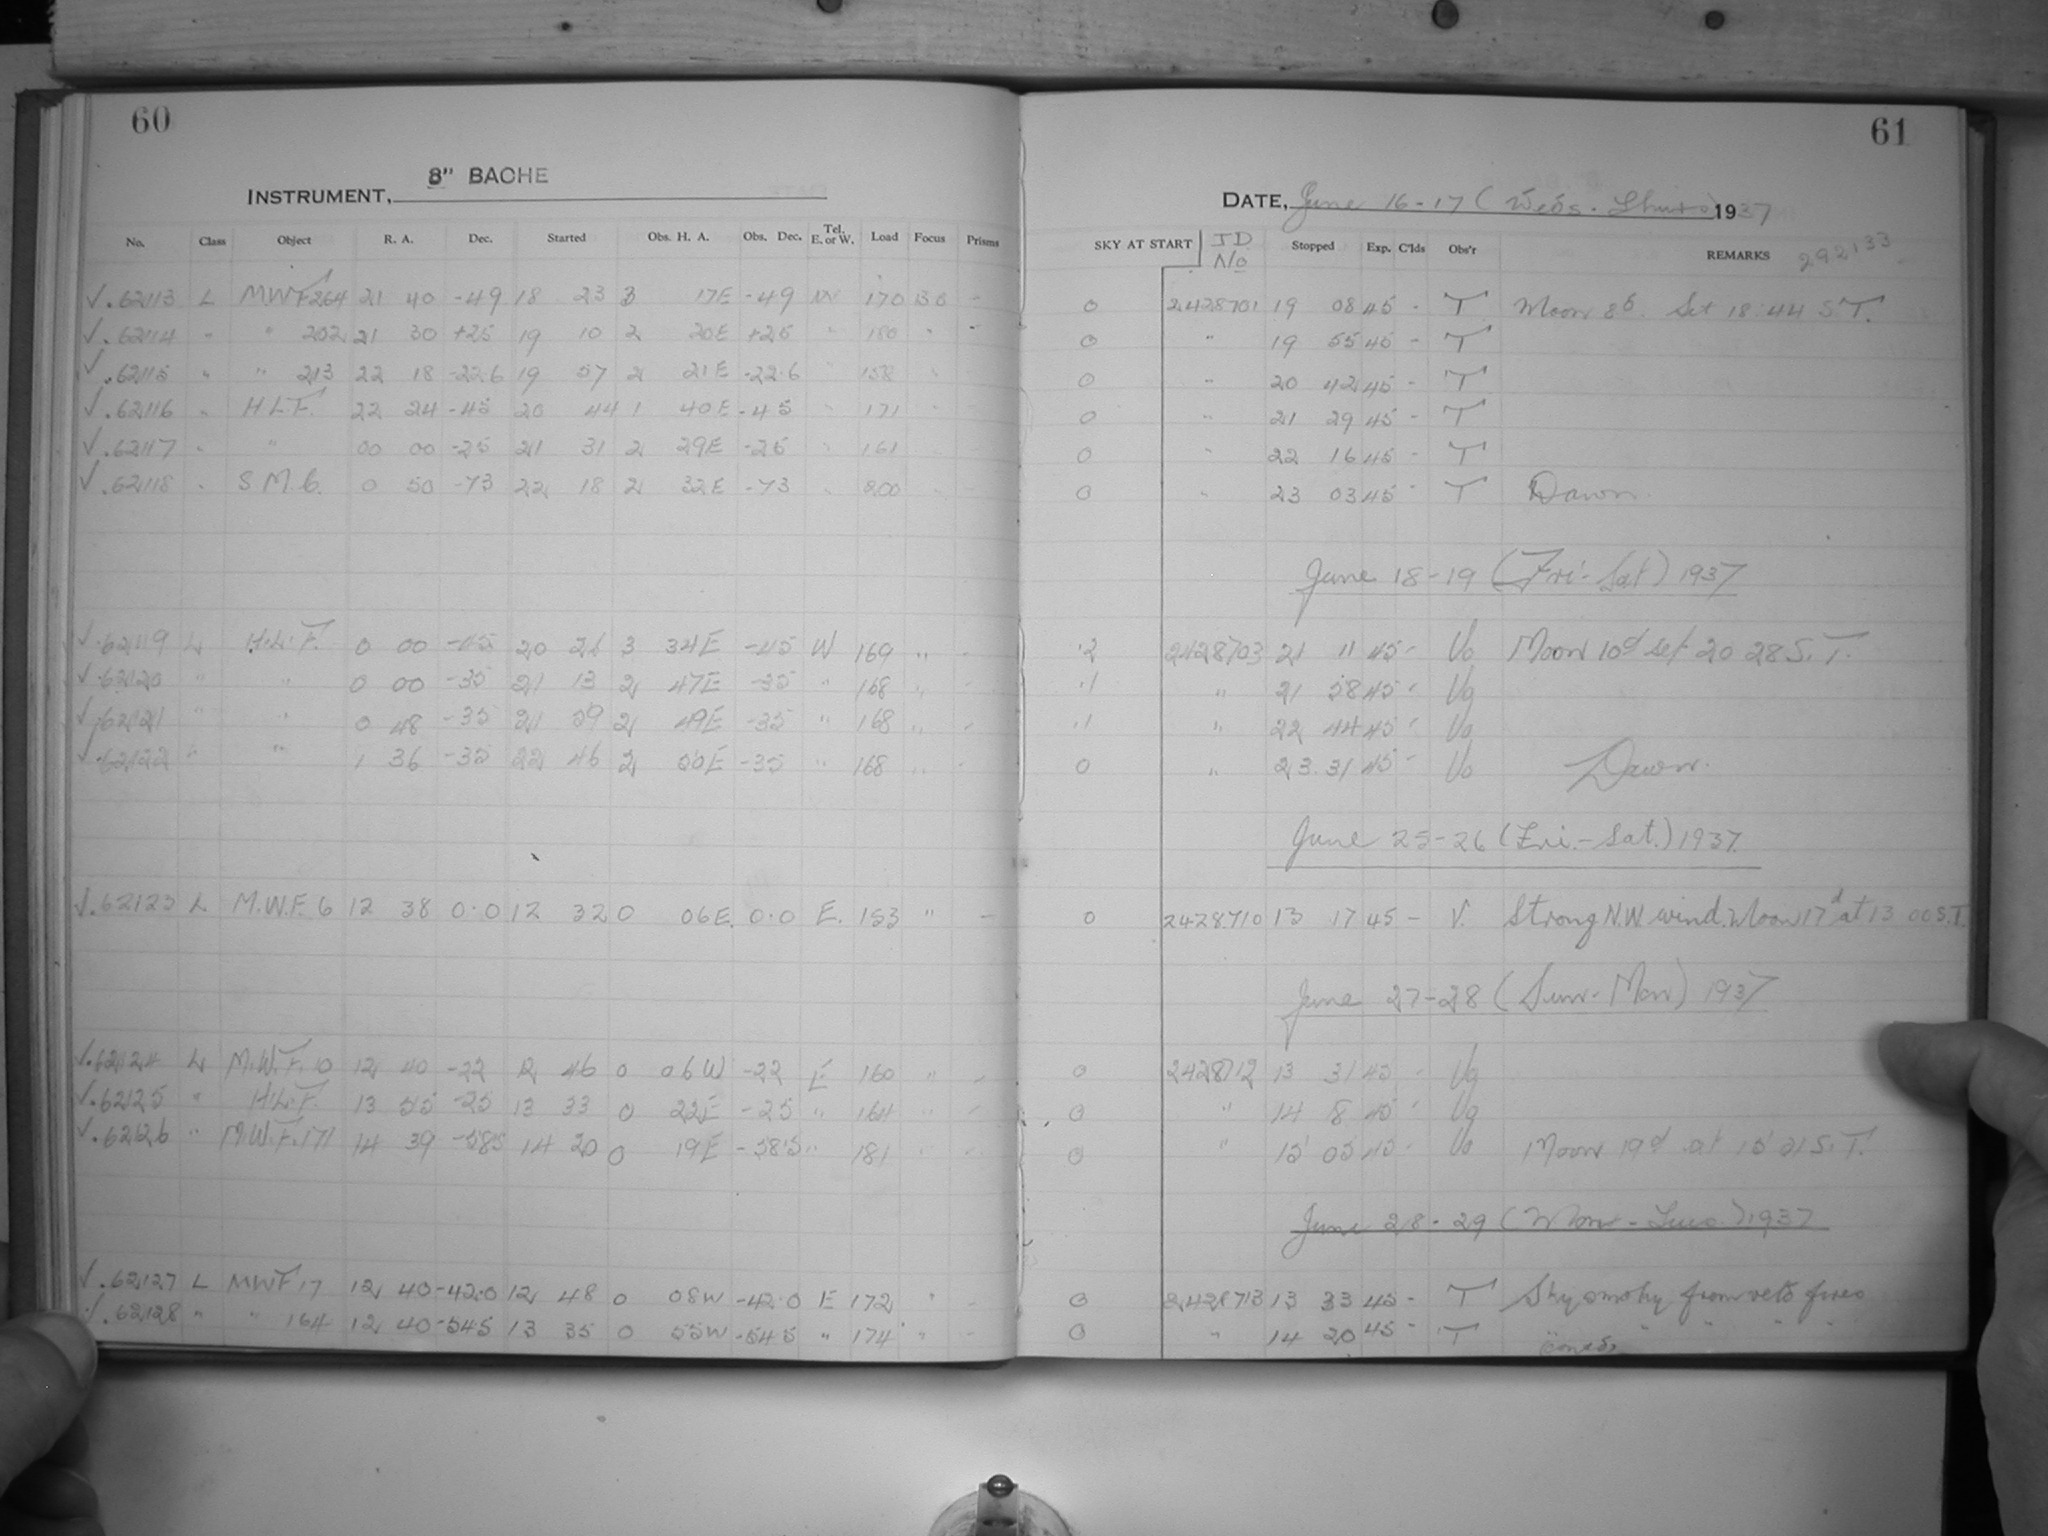 60
INSTRUMENT, 8" BACHE
No. Class Object R. A. Dec. Started Obs. H. A. Obs. Dec. Tel. E. or W. Load Focus Prisms
√.62113 L MWF264 21 40 -49 18 23 3 17E -49 W 170 130 -
√.62114 " " 202 21 30 +25 19 10 2 20E +25 " 180 " -
√.62115 " " 213 22 18 -22.6 19 57 2 21E -22.6 " 158 "
√.62116 " H.L.F. 22 24 -45 20 44 1 40E -45 " 171
√.62117 " " 00 00 -25 21 31 2 29E -25 " 161
√.62118 " S.M.C. 0 50 -73 22 18 2 32E -73 " 200
√.62119 L H.L.F. 0 00 -45 20 26 3 34E -45 W 169 " -
√.62120 " " 0 00 -35 21 13 2 47E -35 " 168 " -
√.62121 " " 0 48 -35 21 59 2 49E -35 " 168 " -
√.62122 " " 1 36 -35 22 46 2 50E -35 " 168 " -
√.62123 L M.W.F. 6 12 38 0.0 12 32 0 06E. 0.0 E. 153 " -
√.62124 L M.W.F. 10 12 40 -22 12 46 0 06W -22 E 160 " -
√.62125 " H.L.F. 13 55 -25 13 33 0 22E -25 " 164 " -
√.62126 " M.W.F. 171 14 39 -58.5 14 20 0 19E -58.5 " 181 " -
√.62127 L MWF 17 12 40 -42.0 12 48 0 08W -42.0 E 172 " -
√.62128 " " 164 12 40 -54.5 13 35 0 55W -54.5 " 174 " -
61
DATE, June 16-17 (Weds. - Thurs) 1937
SKY AT START JD No Stopped Exp. C'lds Obs'r REMARKS 292133
0 2428701 19 08 45 - T Moon 8d. Set 18:44 S.T.
0 " 19 55 45 - T
0 " 20 42 45 - T
0 " 21 29 45 - T
0 " 22 16 45 - T
0 " 23 03 45 - T Dawn.
June 18-19 (Fri-Sat) 1937
.2 2428703 21 11 45 - Vo Moon 10d set 20 28 S.T.
.1 " 21 58 45 - Vo
.1 " 22 44 45 - Vo
0 " 23.31 45 - Vo Dawn.
June 25-26 (Fri.-Sat.) 1937.
0 2428710 13 17 45 - V. Strong N.W. wind. Moon 17d at 13 00 S.T.
June 27-28 (Sun-Mon) 1937
0 2428712 13 31 45 - Vo
0 " 14 18 45 - Vo
0 " 15 05 45 - Vo Moon 19d at 15 21 S.T.
June 28-29 (Mon - Tues.) 1937
0 2428713 13 33 45 - T Sky smoky from veld fires
0 " 14 20 45 - T " " " " "